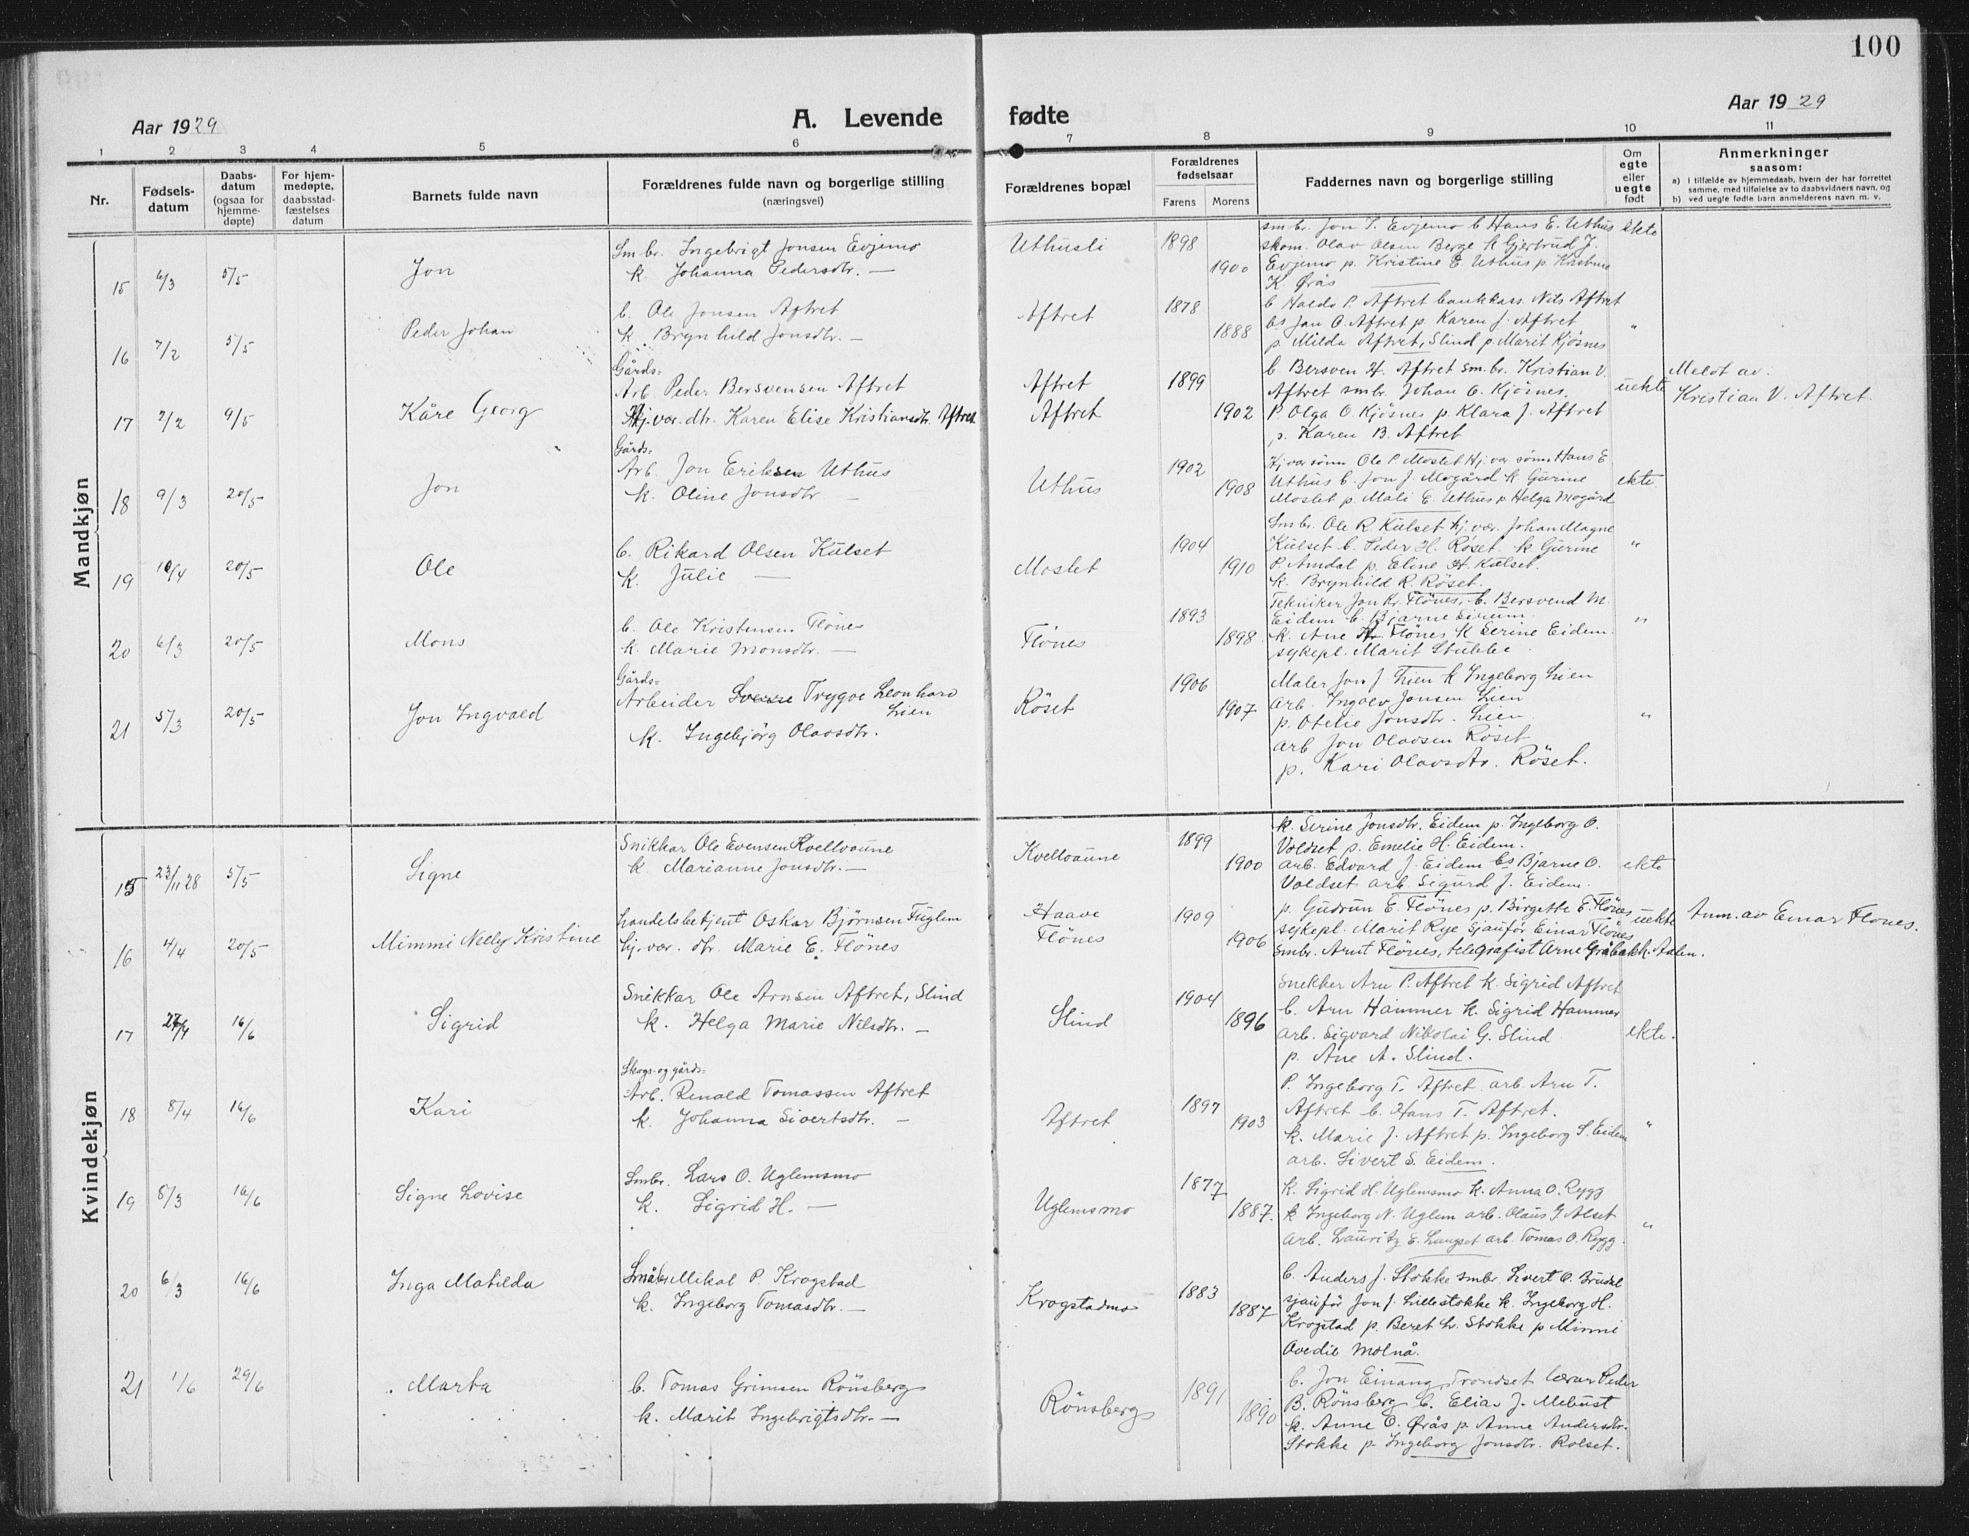 100
Aar 1929
A. Levende fødte
Aar 1929
1 2 3 4 5 6 7 8 9 10 11
Nr.
Fødsels-
datum
Daabs-
datum
(ogsaa for
hjemme-
døpte)
For hjem-
medøpte,
daabsstad-
fæstelses
datum
Barnets fulde navn
Forældrenes fulde navn og borgerlige stilling
(næringsvei)
Forældrenes bopæl
Forældrenes
fødselsaar
Farens Morens
Faddernes navn og borgerlige stilling
Om
egte
eller
uegte
født
Anmerkninger
saasom:
a) i tilfælde av hjemmedaab, hvem der har forrettet
samme, med tilføielse av to daabsvidners navn, og
b) ved uegte fødte barn anmelderens navn m. v.
Mandkjøn
15 6/3 5/5 Jon
Smbr. Ingebrigt Jonsen Evjemo
k. Johanna Pedersdtr. —
Uthusli 1898 1900
smbr. Jon P. Evjemo b Hans E. Uthus
skom. Olav Olsen Berge k Gjertrud J.
Evjemo p. Kristine E. Uthus p. Kristine
K. Ørås
ekte
16 7/2 5/5 Peder Johan
b. Ole Jonsen Aftret
k. Brynhild Jonsdtr. —
Aftret 1878 1888
b Haldo P. Aftret bankkass. Nils Aftret
bs Jan O. Aftret p. Karen J. Aftret
p. Milda Aftret, Slind p. Marit Kjøsnes
"
17 7/2 9/5 Kåre Georg
Gårds-
Arb. Peder Bersvensen Aftret
Hj.vær. dtr. Karen Elise Kristiansdtr. Aftret
Aftret
Aftret
1899 1902
b Bersven H. Aftret smbr. Kristian V.
Aftret smbr. Johan O. Kjøsnes.
P. Olga O. Kjøsnes p. Klara J. Aftret
p. Karen B. Aftret
uekte
Meldt av
Kristian V. Aftret.
18 9/3 20/5 Jon
Gårds-
Arb. Jon Eriksen Uthus
k. Oline Jonsdtr —
Uthus 1902 1908
Hj.vær sønn Ole P. Moslet Hj.vær sønn Hans E
Uthus b. Jon J. Mogård k Gurine
Moslet p. Mali E. Uthus p Helga Mogård
ekte
19 10/4 20/5 Ole
b. Rikard Olsen Kulset
k. Julie —
Moslet 1904 1910
Smbr. Ole R. Kulset hj.vær. Johan Magne
Kulset b. Peder H. Røset. k Gurine
P. Amdal p. Eline H. Kulset.
k. Brynhild R. Røset.
"
20 6/3 20/5 Mons
b. Ole Kristensen Flönes
k. Marie Monsdtr. —
Flönes 1893 1898
Tekniker Jon Kr. Flönes, b. Bersvend M.
Eidem b. Bjarne Eidem.
k. Ane Flönes k Serine Eidem.
sykepl. Marit Stubbe
"
21 5/3 20/5 Jon Ingvald
Gårds-
Arbeider Trygve Leonhard
Lien
k. Ingebjörg Olavsdtr.
Röset 1906 1907
Maler Jon J. Lien k Ingeborg Lien
arb. Ingolv Jonsen Lien
p. Otelie Jonsdtr. Lien
arb Jon Olavsen Röset
p. Kari Olavsdtr. Röset.
"
Kvindekjøn
15 23/11 28 5/5 Signe
Snikkar Ole Evensen Kvellvaune
k. Marianne Jonsdtr. —
Kvellvaune 1899 1900
k. Serine Jonsdtr. Eidem p. Ingeborg O.
Voldset p. Emelie H. Eidem.
arb. Edvard J. Eidem bs Bjarne O.
Voldset arb. Sigurd J. Eidem.
ekte
16 4/4 20/5 Mimmi Nelly Kristine
handelsbetjent Oskar Bjørnsen Fuglem
hj.vær. dtr. Marie E. Flönes
Haave
Flönes
1909 1906
p. Gudrun E. Flönes p. Birgette E. Flönes
sykepl. Marit Rye sjauför Einar Flönes
smbr. Arnt Flönes, telegrafist Arne Gråbakk. Aalen.
uekte
Anm. av Einar Flones.
17 16/6 Sigrid
Snikkar Ole Arnsen Aftret, Slind
k. Helga Marie Nilsdtr. —
Slind 1904 1896
Snekker Arn P. Aftret k. Sigrid Aftret
b. Arn Hammer k. Sigrid Hammer
arb. Sigvard Nikolai G. Slind
p. Ane A. Slind.
ekte.
18 8/4 16/6 Kari
Skogs- og gårds-
Arb. Renald Tomassen Aftret
k. Johanna Sivertsdtr. —
Aftret 1897 1903
P. Ingeborg T. Aftret arb. Arn T.
Aftret b. Hans T. Aftret.
k. Marie J. Aftret p. Ingeborg S. Eidem
arb. Sivert S. Eidem.
"
19 8/3 16/6 Signe Lovise
Smbr. Lars O. Uglemsmo
k. Sigrid H. —
Uglemsmo 1877 1887.
k. Sigrid H. Uglemsmo k. Anna O. Rygg
k Ingeborg N. Uglem arb. Olaus G. Alset
arb. Lauritz E. Langset arb. Tomas O. Rygg.
"
20 6/3 16/6 Inga Matilda
Småbr. Mikal P. Krogstad
k. Ingeborg Tomasdtr. —
Krogstadmo 1883 1887
b. Anders J. Stokke smbr. Sivert O. Brudal
sjauför Jon J. Lillestokke k. Ingeborg H.
Krogstad p. Beret L. Stokke p Minni
Ovedie Molnå.
21 1/6 29/6 Marta
b. Tomas Grimsen Rönsberg
k. Marit Ingebrigtsdtr. —
Rönsberg 1891 1890
b. Jon Einang Trondset lærar Peder
B. Rönsberg b. Elias J. Mebust
k. Anne O. Ørås p. Anne Andersdtr.
Stokke p. Ingeborg Jonsdtr. Rolset.